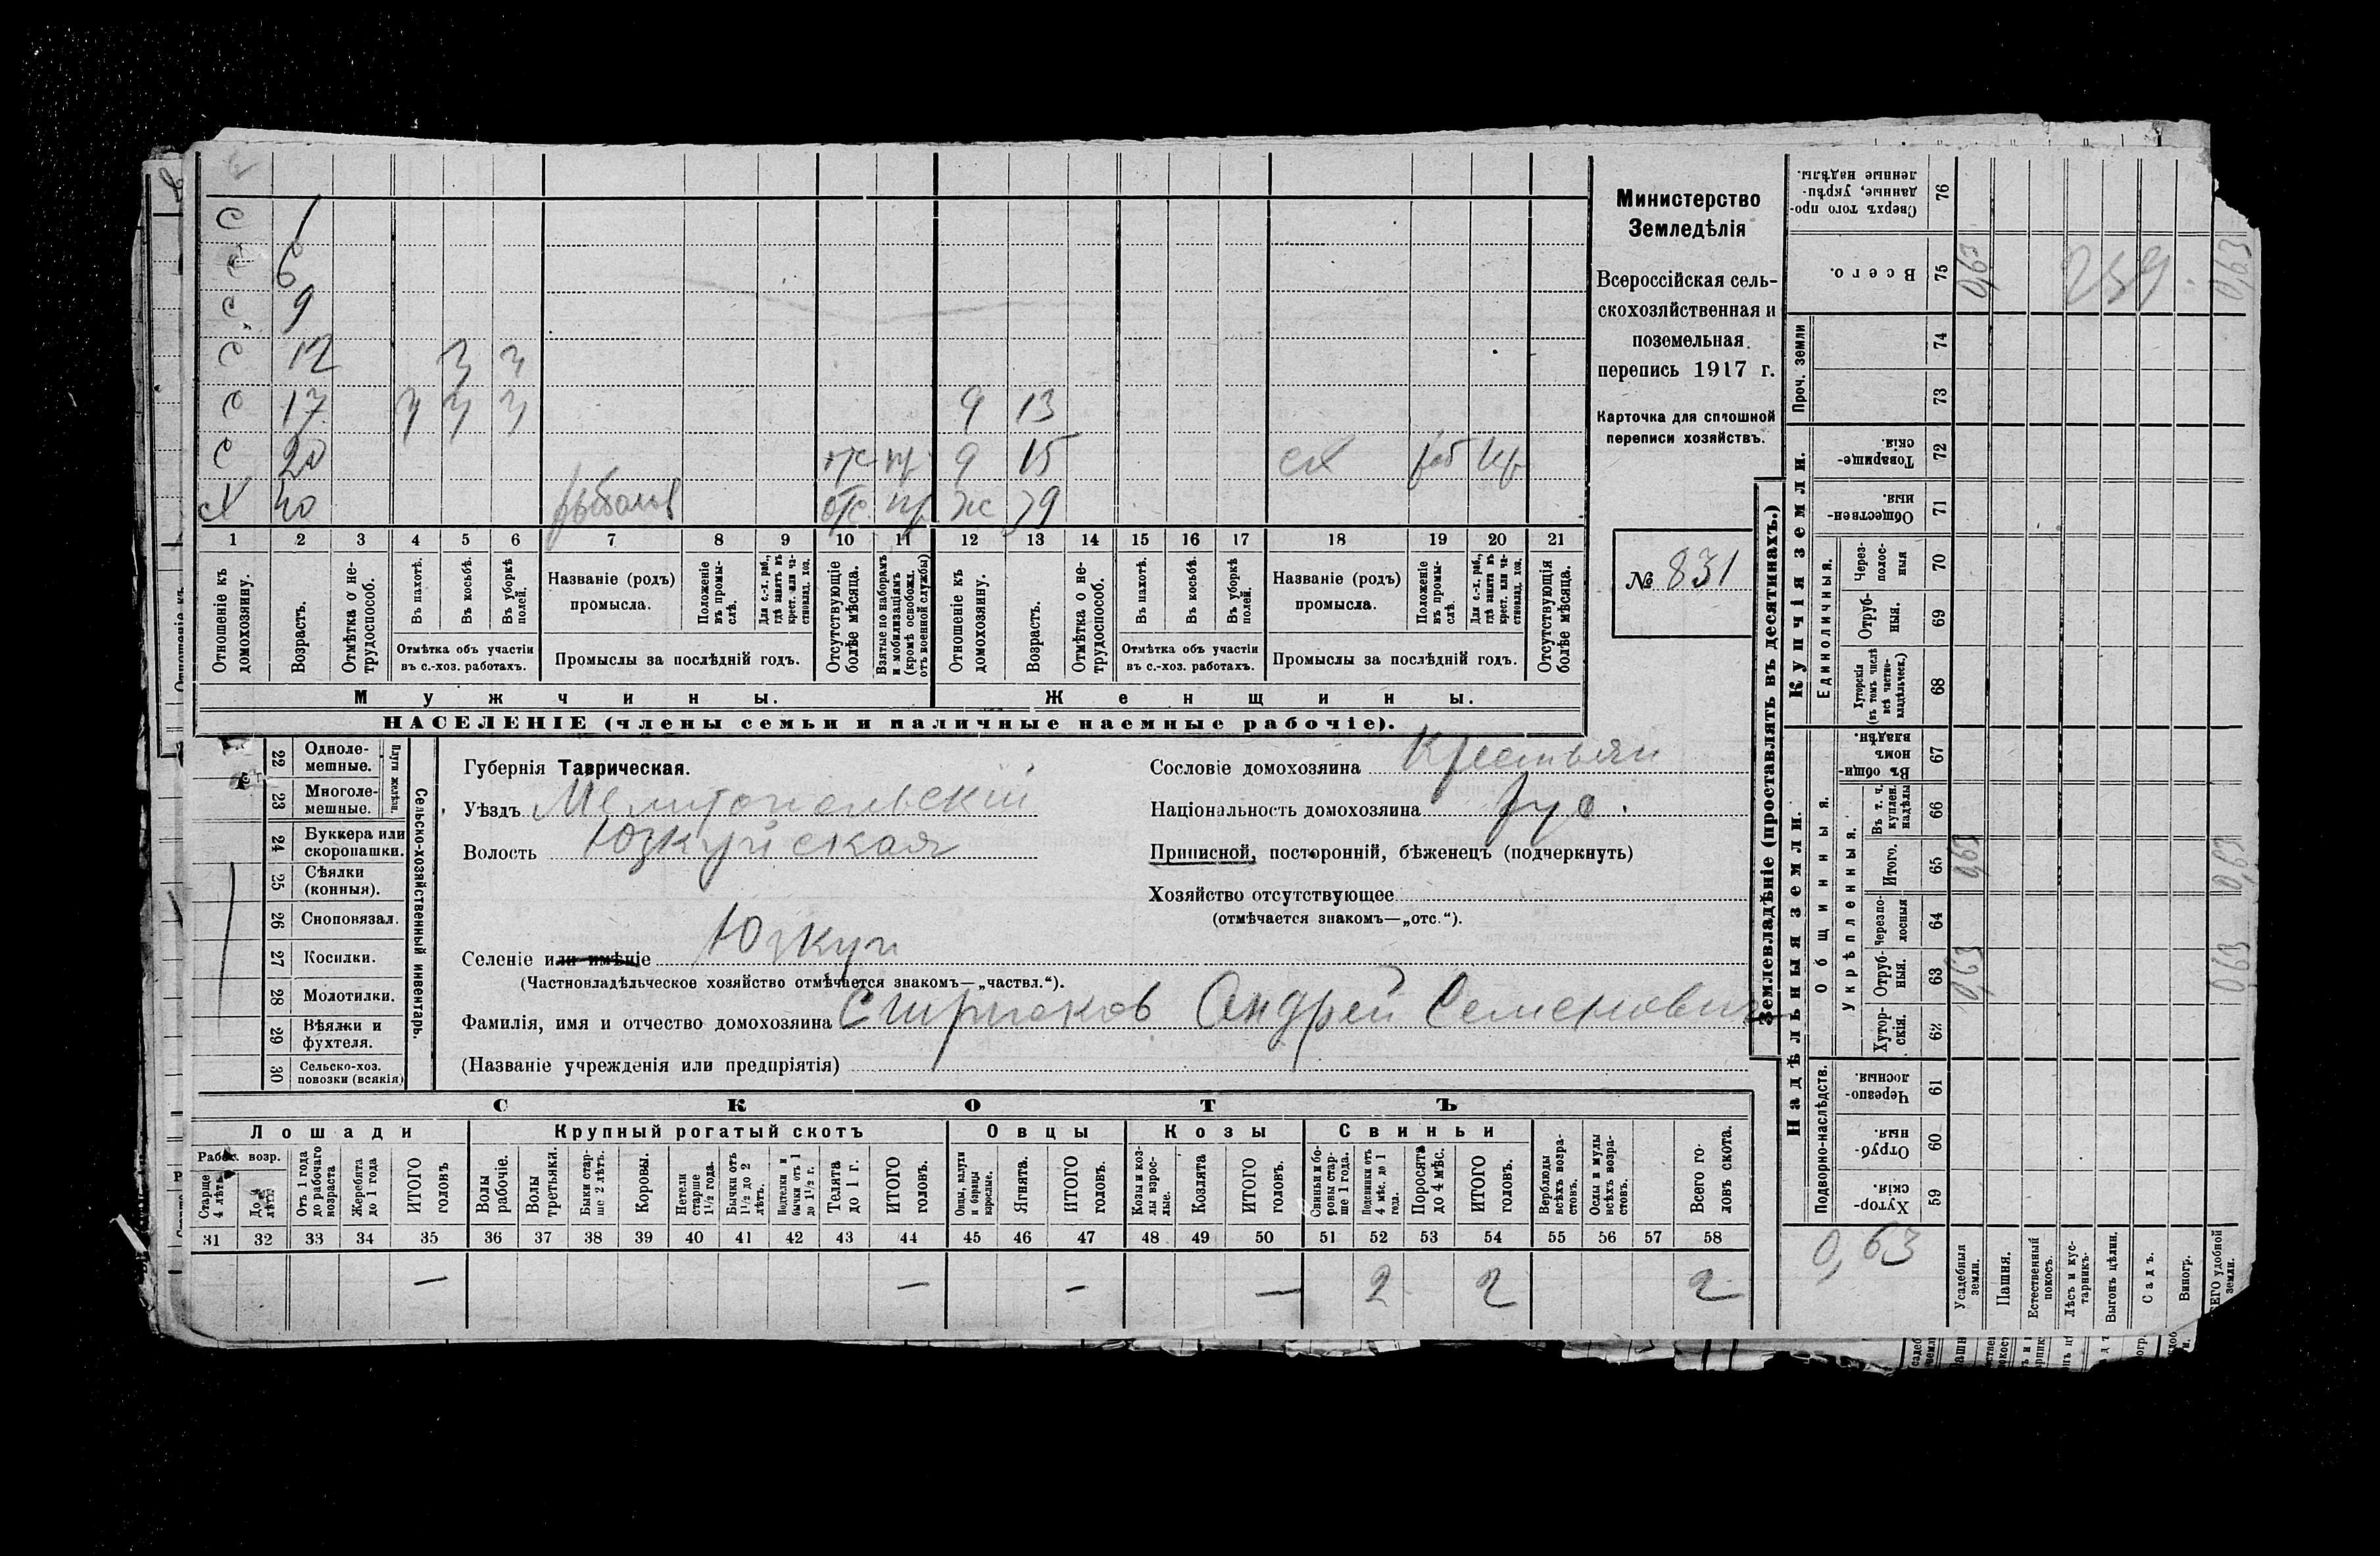 С 1
С 6
С 9
С 12 3 3
С 17 9 13
С 20 отс пр 9 15 сх раб кр
сХ 40 рыболов отс пр ж 39
1 2 3 4 5 6 7 8 9 10 11 12 13 14 15 16 17 18 19 20 21
Отношеніе къ домохозяину.
Возрастъ.
Отмѣтка о нетрудоспособ.
Въ пахотѣ.
Въ косьбѣ.
Въ уборкѣ полей.
Отмѣтка объ участіи въ с.-хоз. работахъ.
Названіе (родъ) промысла.
Положеніе въ промыслѣ.
Для с.-х. раб., гдѣ занятъ въ крест. или частновлад. хоз.
Промыслы за послѣдній годъ.
Отсутствующіе болѣе мѣсяца.
Взятые по наборамъ и мобилизаціямъ (кромѣ освобожд. отъ военной службы)
Отношеніе къ домохозяину.
Возрастъ.
Отмѣтка о нетрудоспособ.
Въ пахотѣ.
Въ косьбѣ.
Въ уборкѣ полей.
Отмѣтка объ участіи въ с.-хоз. работахъ.
Названіе (родъ) промысла.
Положеніе въ промыслѣ.
Для с.-х. раб., гдѣ занята въ крест. или частновлад. хоз.
Промыслы за послѣдній годъ.
Отсутствующія болѣе мѣсяца.
Мужчины.
Женщины.
НАСЕЛЕНІЕ (члены семьи и наличные наемные рабочіе).
Министерство
Земледѣлія
Всероссійская сель-
скохозяйственная и
поземельная
перепись 1917 г.
Карточка для сплошной
переписи хозяйствъ.
№ 831
22 Одноле-
мешные.
23 Многоле-
мешные.
Плуги желѣзн.
24 Буккера или
скоропашки.
25 Сѣялки
(конныя).
26 Сноповязал.
27 Косилки.
28 Молотилки.
29 Вѣялки и
фухтеля.
30 Сельско-хоз.
повозки (всякія)
Сельско-хозяйственный инвентарь.
Губернія Таврическая.
Уѣздъ Мелитопольскій
Волость Юзкуйская
Селеніе или имѣніе Юзкуи
(Частновладѣльческое хозяйство отмѣчается знакомъ—„частвл.“).
Фамилія, имя и отчество домохозяина Андрей Семенович
(Названіе учрежденія или предпріятія)
Сословіе домохозяина Крестьян
Національность домохозяина рус.
Приписной, посторонній, бѣженецъ (подчеркнуть)
Хозяйство отсутствующее
(отмѣчается знакомъ—„отс.“).
СКОТЪ
Лошади
Крупный рогатый скотъ
Овцы
Козы
Свиньи
Рабоч. возр.
Старше 4 лѣтъ
До 4 лѣтъ
Отъ 1 года до рабочаго возраста
Жеребята до 1 года
ИТОГО головъ
Волы рабочіе.
Волы третьяки.
Быки старше 2 лѣтъ.
Коровы.
Нетели старше 1½ года.
Бычки отъ 1½ до 2 лѣтъ.
Подтелки и бычки отъ 1 до 1½ г.
Телята до 1 г.
ИТОГО головъ.
Овцы, валухи и бараны взрослые.
Ягнята.
ИТОГО головъ.
Козы и козлы взрослые.
Козлята
ИТОГО головъ.
Свиньи и боровы старше 1 года.
Подсвинки отъ 4 мѣс. до 1 года.
Поросята до 4 мѣс.
ИТОГО головъ.
Верблюды всѣхъ возрастовъ.
Ослы и мулы всѣхъ возрастовъ.
Всего головъ скота.
31 32 33 34 35 36 37 38 39 40 41 42 43 44 45 46 47 48 49 50 51 52 53 54 55 56 57 58
— — — — 2 2 2
Землевладѣніе (проставлять въ десятинахъ.)
Надѣльныя земли.
Купчія земли.
Проч. земли
Подворно-наслѣдств.
Общинныя.
Укрѣпленныя.
Единоличныя.
Сверхъ того проданные, укрѣпленные надѣлы. 76
Всего. 75 0,63 259 0,63
74
73
Товарищескія. 72
Общественныя. 71
Черезполосныя 70
Отрубныя. 69
Хуторскія (въ томъ числѣ всѣ частновладѣльческ.) 68
Въ общинномъ владѣн. 67
Въ т. ч. куплен. надѣлы 66
Итого. 65 0,63 0,63
Черезполосныя 64
Отрубныя. 63 0,63 0,63
Хуторскія. 62
Черезполосныя. 61
Отрубныя. 60
Хуторскія. 59
0,63
Усадебныя земли.
Пашня.
Естественный покосъ.
Лѣсъ и кустарникъ.
Выгонъ цѣлин.
Садъ.
Виногр.
ЕГО удобной земли.